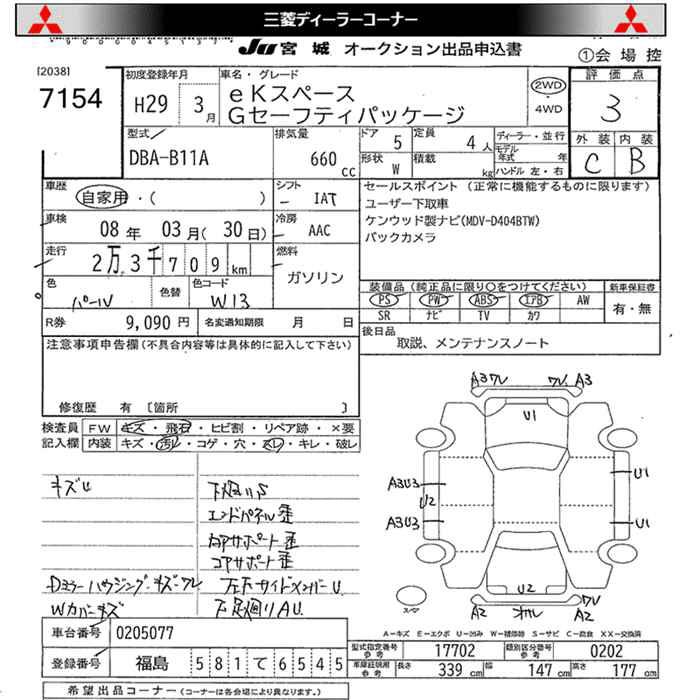 三菱ディーラーコーナー
JU 宮 城 オークション出品申込書
①会 場 控
[2038]
7154
初度登録年月
H29 3月
車名・グレード
eKスペース
Gセーフティパッケージ
2WD
4WD
評 価 点
3
外 装 内 装
C B
型式
DBA-B11A
排気量
660 cc
ドア 5
定員 4 人
形状 W
積載 kg
ディーラー・並 行
モデル年式 年
ハンドル 左・右
車歴
自家用・( )
シフト
IAT
車検
08 年 03 月( 30 日)
冷房
AAC
走行
2万3千709km
燃料
ガソリン
色
パール
色替
色コード
W13
R券 9,090 円
名変通知期限 月 日
セールスポイント (正常に機能するものに限ります)
ユーザー下取車
ケンウッド製ナビ(MDV-D404BTW)
バックカメラ
装備品 (純正品に限り○をつけてください)
PS PW ABS エアB AW
SR ナビ TV カワ
新車保証書
有・無
後日品
取説、メンテナンスノート
注意事項申告欄(不具合内容等は具体的に記入して下さい)
修復歴 有 〔箇所 〕
検査員記入欄
FW キズ・飛石・ヒビ割・リペア跡・×要
内装 キズ・汚レ・コゲ・穴・スレ・キレ・破レ
キズU
下廻りS
エンドパネル歪
コアサポート歪
Dミラーハウジング・キズ・ワレ
左下サイドメンバーU
Wカバーキズ
下足廻りAU
A3ワレ
ワレ A3
U1
A3U3
U2
A3U3
U1
U1
U2
A2
ワレ
A2
スペア
A-キズ E-エクボ U-凹み W-補修跡 S-サビ C-腐食 XX-交換済
車台番号 0205077
登録番号 福島 581て6545
型式指定番号 参考 17702
類別区分番号 参考 0202
車庫証明用 参考
長さ 339 cm 幅 147 cm 高さ 177 cm
希望出品コーナー (コーナーは各会場により異なります。)